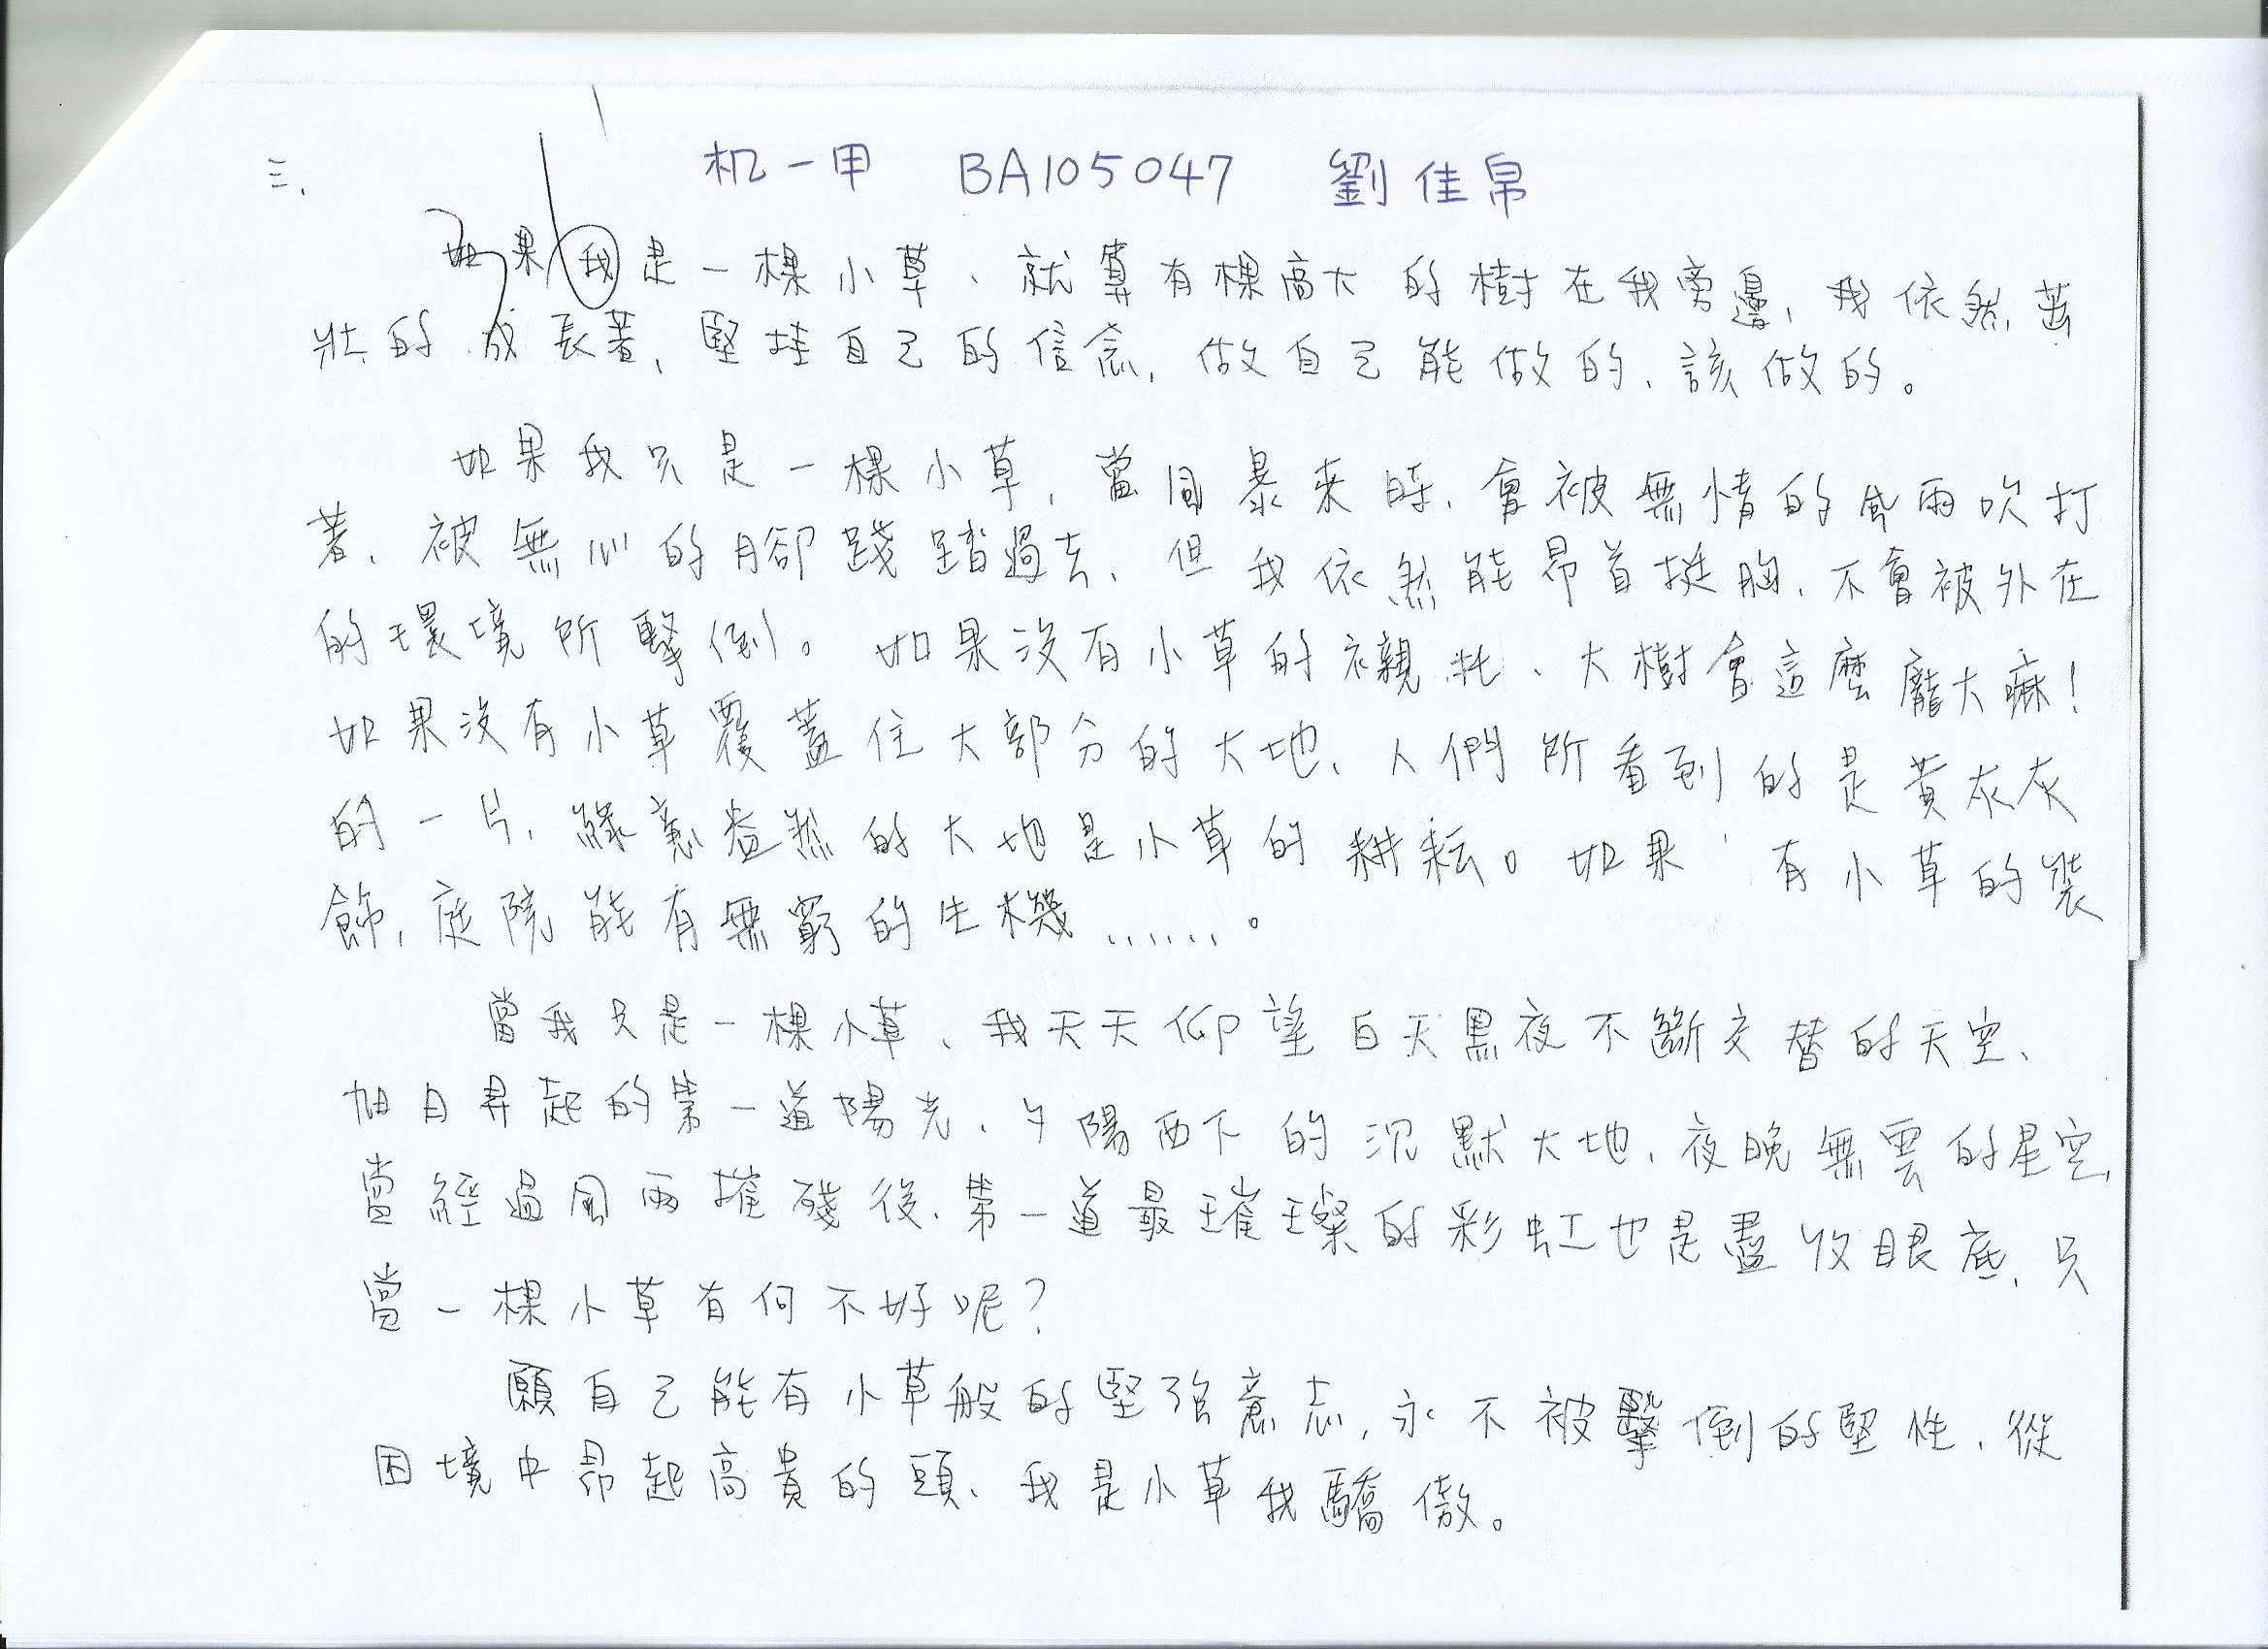 机一甲 BA105047 劉佳帛
三、
如果我是一棵小草、就算有棵高大的樹在我旁邊、我依然茁
壯的成長著、堅持自己的信念、做自己能做的、該做的。
如果我只是一棵小草、當風暴來時、會被無情的風雨吹打
著、被無心的腳踐踏過去、但我依然能昂首挺胸、不會被外在
的環境所擊倒。如果沒有小草的襯托、大樹會這麼龐大嘛!
如果沒有小草覆蓋住大部分的大地、人們所看到的是黃灰灰
的一片、綠意盎然的大地是小草的耕耘。如果有小草的裝
飾、庭院能有無窮的生機……。
當我只是一棵小草、我天天仰望白天黑夜不斷交替的天空、
旭日昇起的第一道陽光、夕陽西下的沉默大地、夜晚無雲的星空、
當經過風雨摧殘後、第一道最璀璨的彩虹也是盡收眼底、只
當一棵小草有何不好呢?
願自己能有小草般的堅強意志、永不被擊倒的堅性、從
困境中昂起高貴的頭、我是小草我驕傲。